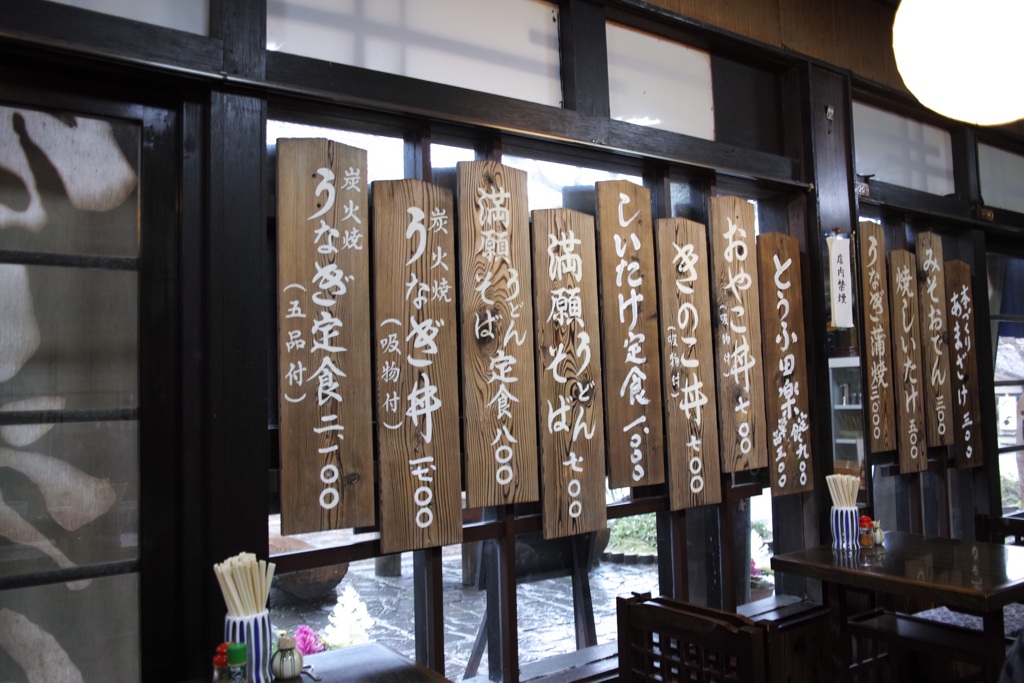 炭火焼
うなぎ定食 二、一〇〇
(五品付)
炭火焼
うなぎ丼 一、七〇〇
(吸物付)
満願うどん
そば定食 八〇〇
満願うどん
そば 七〇〇
しいたけ定食 一、〇〇〇
きのこ丼 七〇〇
(吸物付)
おやこ丼 七〇〇
(吸物付)
とうふ田楽
定食九〇〇
店内禁煙
うなぎ蒲焼
焼しいたけ 五〇〇
みそおでん 三〇〇
手づくり
あまざけ 三〇〇